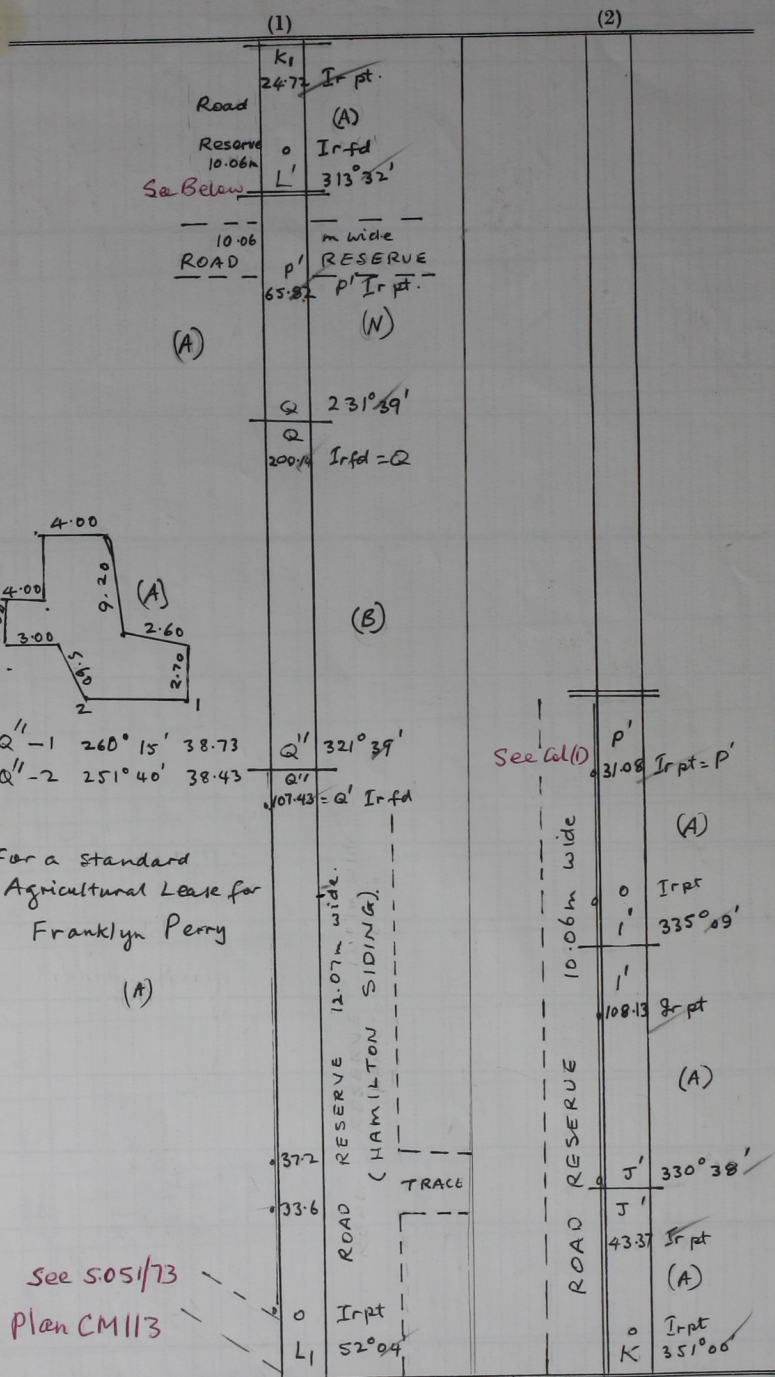 (1)
K₁
24.72 Ir pt.
Road
(A)
Reserve o Ir fd
10.06m
See Below L' 313°32'
10.06 m wide
ROAD P' RESERVE
65.82 P' Ir pt.
(A) (N)
Q 231°39'
Q
200.14 Irfd = Q
4.00
9.20
(A)
4.00
2.60
3.00
2.70
2 1
(B)
Q"-1 260° 15' 38.73
Q" 321°39'
Q"-2 251° 40' 38.43
Q"
107.43 = Q' Irfd
For a standard
Agricultural Lease for
Franklyn Perry
(A)
ROAD RESERVE 12.07m wide.
(HAMILTON SIDING)
37.2
TRACE
33.6
See S.051/73
Plan CM113
o Irpt
L₁ 52°04'
(2)
P'
See Col(1) 31.08 Irpt = P'
(A)
o Irpt
I' 335°09'
I'
108.13 Ir pt
(A)
ROAD RESERVE 10.06m wide
J' 330°38'
J'
43.37 Ir pt
(A)
o Irpt
K 351°00'